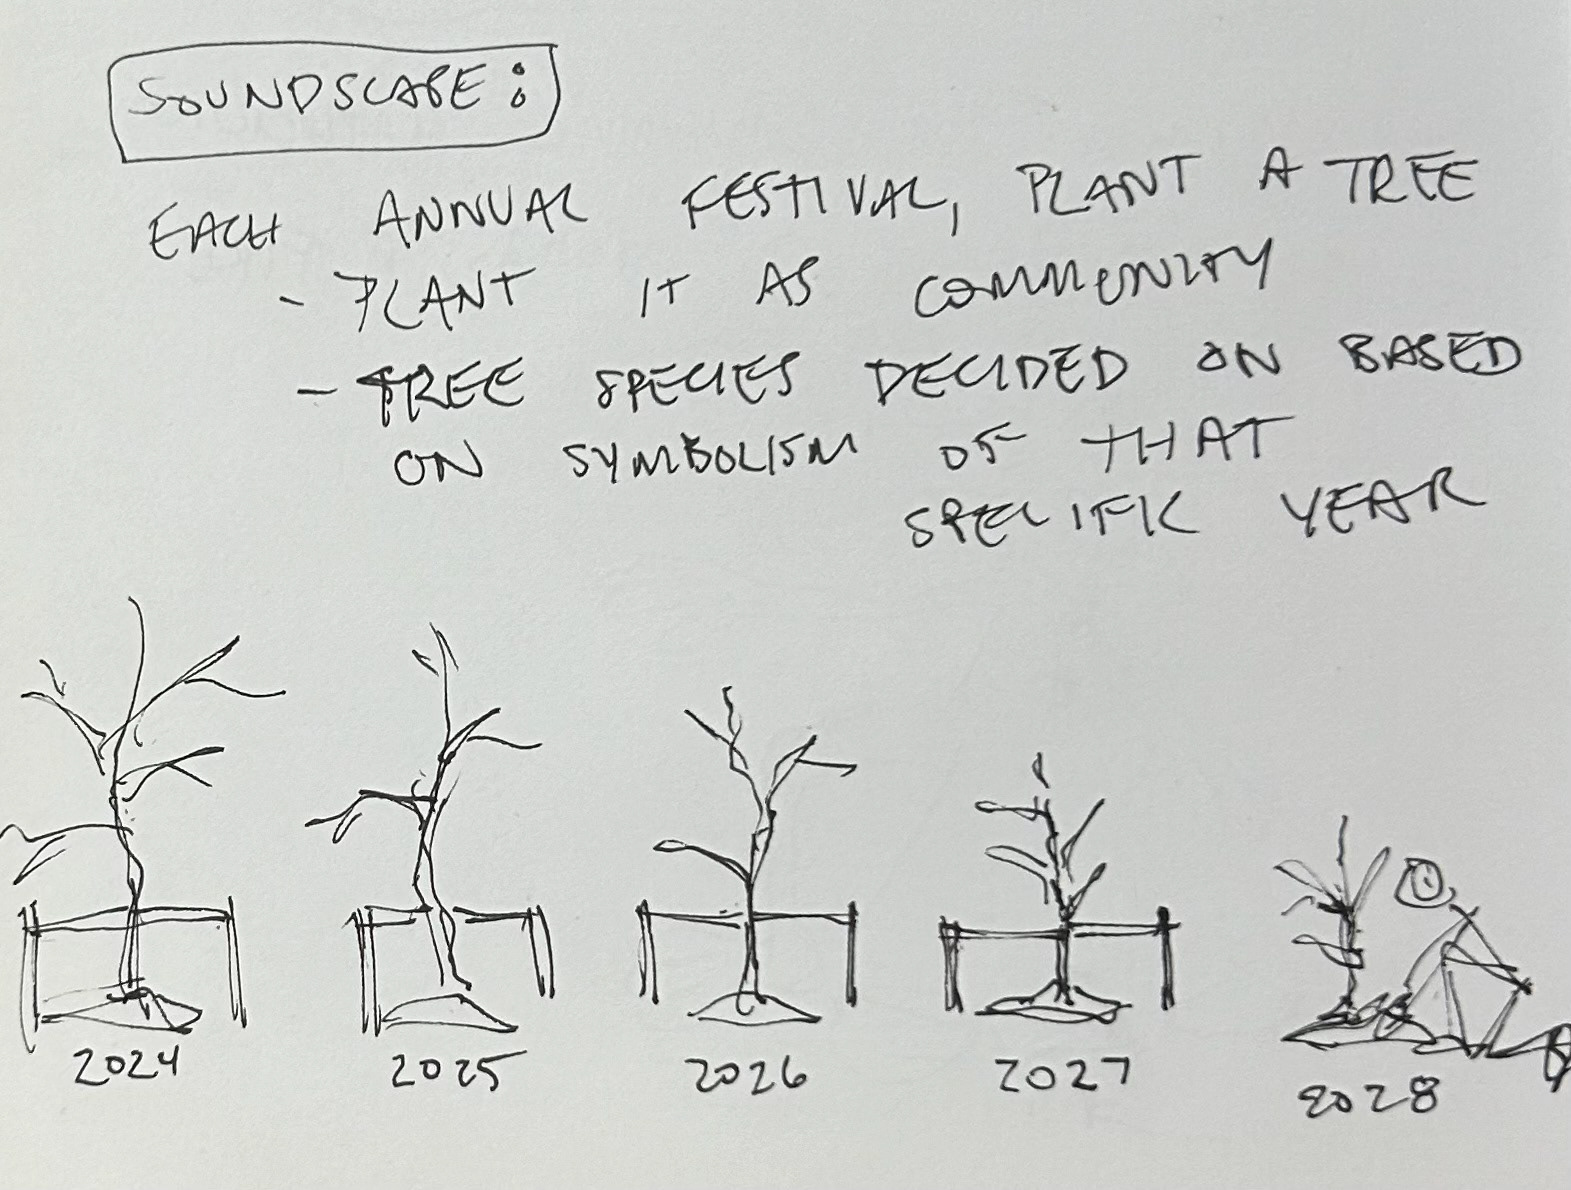 SOUNDSCAPE:
EACH ANNUAL FESTIVAL, PLANT A TREE
- PLANT IT AS COMMUNITY
- TREE SPECIES DECIDED ON BASED
ON SYMBOLISM OF THAT
SPECIFIC YEAR
2024 2025 2026 2027 2028